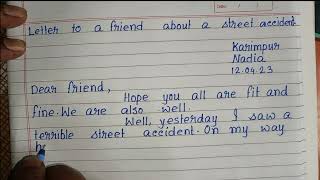 Letter to a friend about a street accident
Karimpur
Nadia
12.04.23
Dear friend,
Hope you all are fit and
fine. We are also well.
Well, yesterday I saw a
terrible street accident. On my way
h